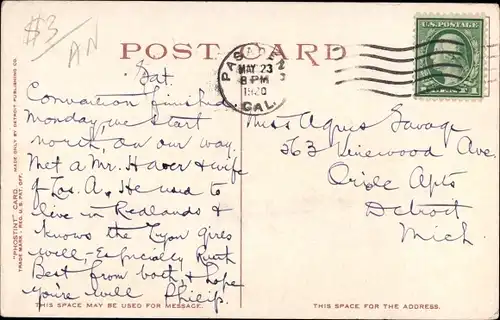 $3
AN
POST CARD
PASADENA
MAY 23
8 PM
1920
CAL.
U.S. POSTAGE
Sat
Convention finished
Monday, we start
north, on our way.
Met a Mr. Haver & wife
of Los. A. He used to
live in Redlands &
knows the Lyon girls
well, - Especially Ruth
Best from both, & hope
you're well Philip.
Miss Agnes Savage
563 Linewood Ave
Oriole Apts
Detroit
Mich
"PHOSTINT" CARD MADE ONLY BY DETROIT PUBLISHING CO.
TRADE MARK - REG. U.S. PAT. OFF.
THIS SPACE MAY BE USED FOR MESSAGE.
THIS SPACE FOR THE ADDRESS.